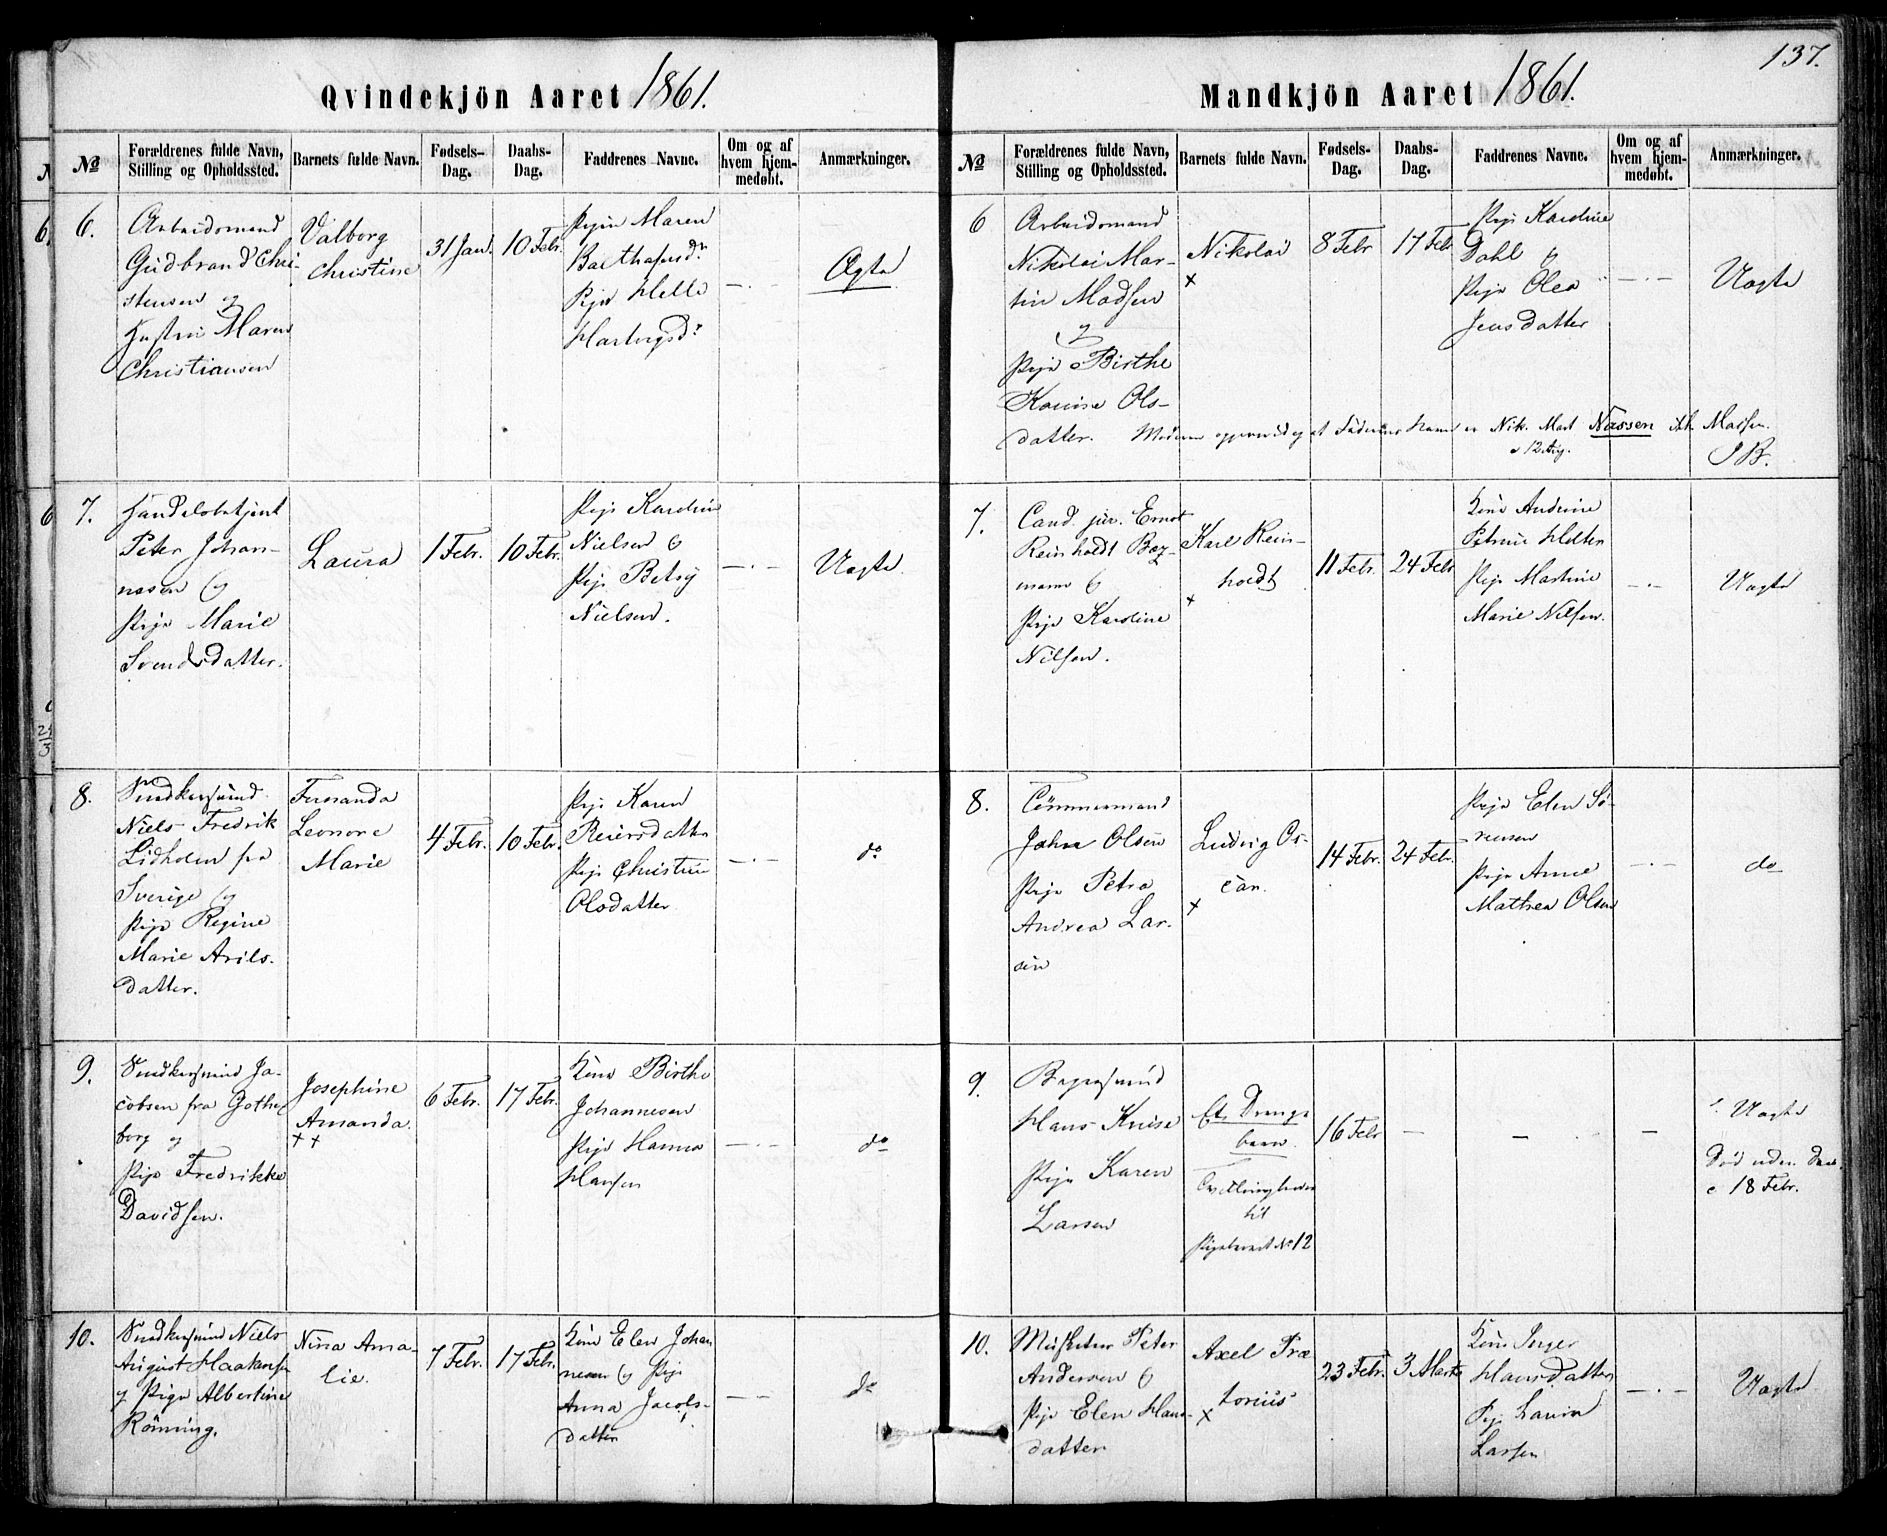 137.
Qvindekjön Aaret 1861.
No
Forældrenes fulde Navn, Stilling og Opholdssted.
Barnets fulde Navn.
Fødsels-Dag.
Daabs-Dag.
Faddrenes Navne.
Om og af hvem hjemmedøbt.
Anmærkninger.
6.
Arbeidsmand
Gudbrand Chri-
stensen og
Hustru Maren
Christiansen
Valborg
Christine
31 Jan.
10 Febr.
Pigen Maren
Balthasersdr
Pige Helle
Hartvigsdr
Ægte
7.
Handelsbetjent
Peter Johan-
nesen og
Pige Marie
Svendsdatter.
Laura
1 Febr.
10 Febr.
Pige Karoline
Nielsen og
Pige Betsy
Nielsen.
Uægte.
8.
Snedkersvend
Niels Fredrik
Lidholm fra
Sverige og
Pige Regine
Marie Arils-
datter.
Fernanda
Leonore
Marie
4 Febr.
10 Febr.
Pige Karen
Reiersdatter
Pige Christine
Olsdatter
do
9.
Snedkersvend Ja-
cobsen fra Gothe-
borg og
Pige Fredrikke
Davidsen.
Josephine
Amanda.
++
6 Febr.
17 Febr.
Kone Birthe
Johannesen
Pige Hanna
Hansen
do
10.
Snedkersvend Niels
August Haakensen
og Pige Albertine
Rönning.
Nina Ama-
lie.
7 Febr.
17 Febr.
Kone Elen Johan
nesen og Pige
Anna Jacobs-
datter
do
Mandkjön Aaret 1861.
No
Forældrenes fulde Navn, Stilling og Opholdssted.
Barnets fulde Navn.
Fødsels-Dag.
Daabs-Dag.
Faddrenes Navne.
Om og af hvem hjemmedøbt.
Anmærkninger.
6
Arbeidsmand
Nikolai Mar-
tin Madsen
og
Pige Birthe
Karine Ols-
datter.
Nikolai
+
8 Febr
17 Febr
Pige Karoline
Dahl og
Pige Olea
Jensdatter
Uægte
Moderen opgiver at Faderens Navn er Nik. Mart Nassen ikke Madsen.
12 Aug.
7.
Cand. jur. Ernst
Reinholdt Boy-
mann og
Pige Karoline
Nilsen.
Karl Rein-
holdt
+
11 Febr.
24 Febr
Kone Andrine
Petrine Holter
Pige Martine
Marie Nilsen.
Uægte
8.
Tömmermand
Johan Olsen
Pige Petra
Andrea Lar-
sen
Ludvig Os-
car.
+
14 Febr.
24 Febr.
Pige Elen Sö-
rensen
Pige Anne
Mathea Olsen
do
9.
Bagersvend
Hans Kruse
Pige Karen
Larsen
Et Drenge
barn.
Tvillingbroder
til
Pigebarnet No 12
16 Febr
Uægte
Död uden Daab
18 Febr.
10.
Musketer Peter
Andersen og
Pige Elen Hans-
datter
Axel Præ
torius
+
23 Febr.
3 Marts
Kone Inger
Hansdatter
Pige Laura
Larsen
Uægte